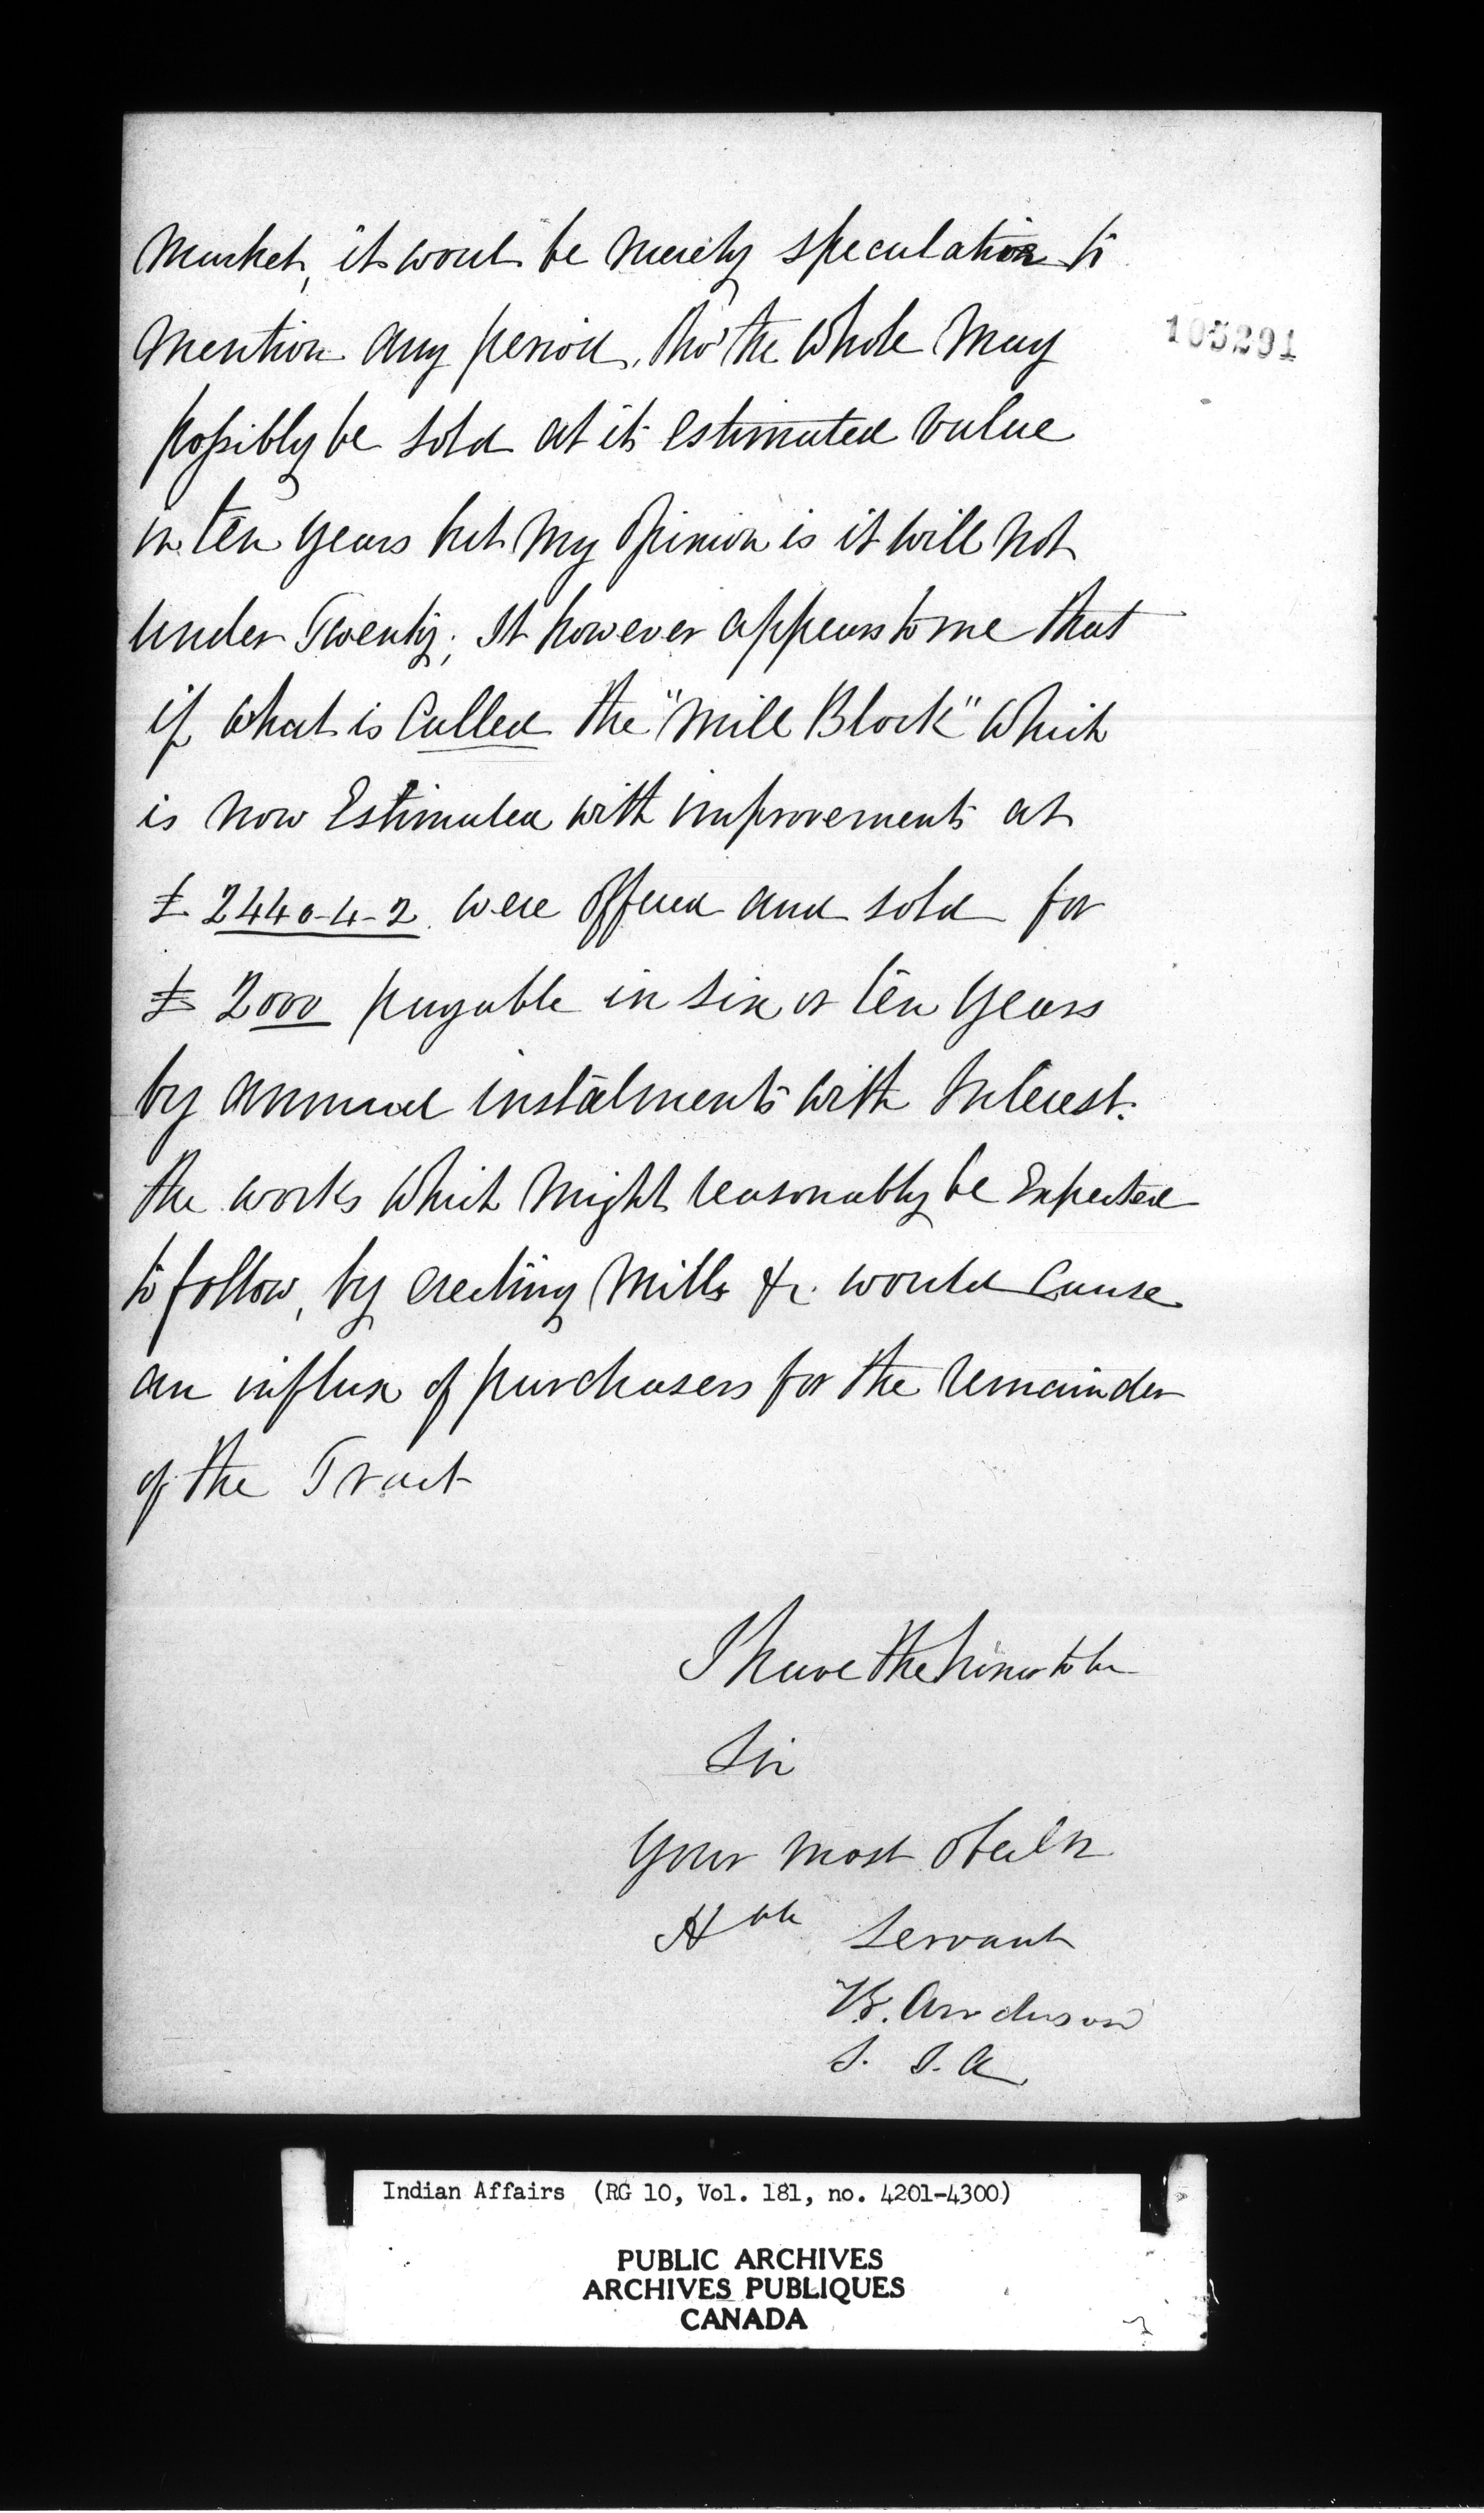 Market, it woul be merely speculation to
Mention any period, tho' the Whole May
105291
possibly be sold at its estimated value
in ten years but My Opinion is it will Not
under Twenty; It however appears to me that
if what is Called the "Mill Block" Which
is now Estimated with improvements at
£ 2440-4-2. were offered and sold for
£ 2000 payable in six or ten years
by annual instalments with Interest.
the works Which Might reasonably be Expected
to follow, by erecting Mills &c. would Cause
an influx of purchasers for the remainder
of the Tract
I have the honor to be
Sir
Your Most
Hble Servant
Anderson
S. I. A
Indian Affairs (RG 10, Vol. 181, no. 4201-4300)
PUBLIC ARCHIVES
ARCHIVES PUBLIQUES
CANADA